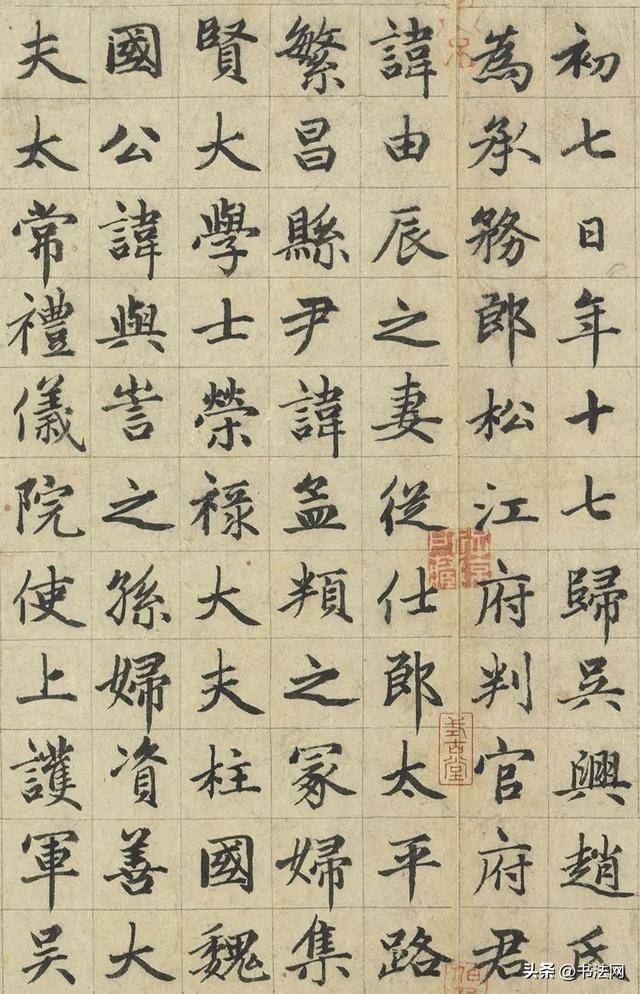 初七日年十七歸吳興趙氏
為承務郎松江府判官府君
諱由辰之妻從仕郎太平路
繁昌縣尹諱孟頖之冢婦集
賢大學士榮祿大夫柱國魏
國公諱與訔之孫婦資善大
夫太常禮儀院使上護軍吳
式古堂
头条 @书法网